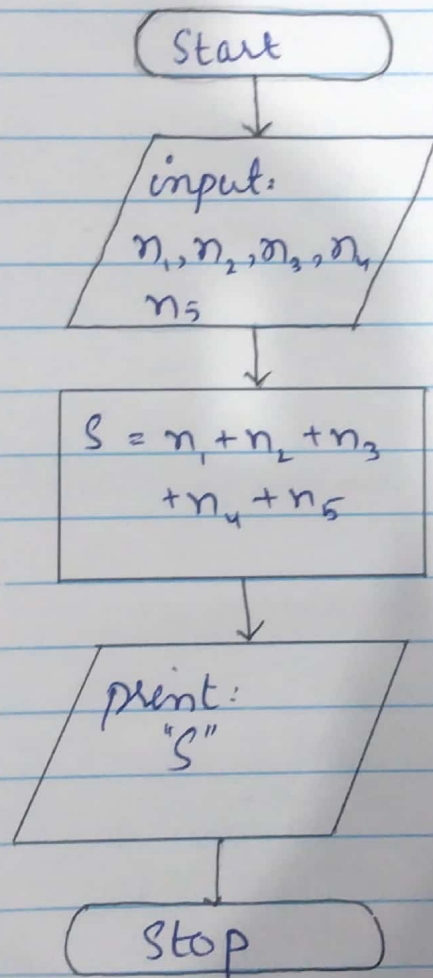 Start
input:
n₁, n₂, n₃, n₄
n₅
S = n₁ + n₂ + n₃
+ n₄ + n₅
print:
"S"
Stop